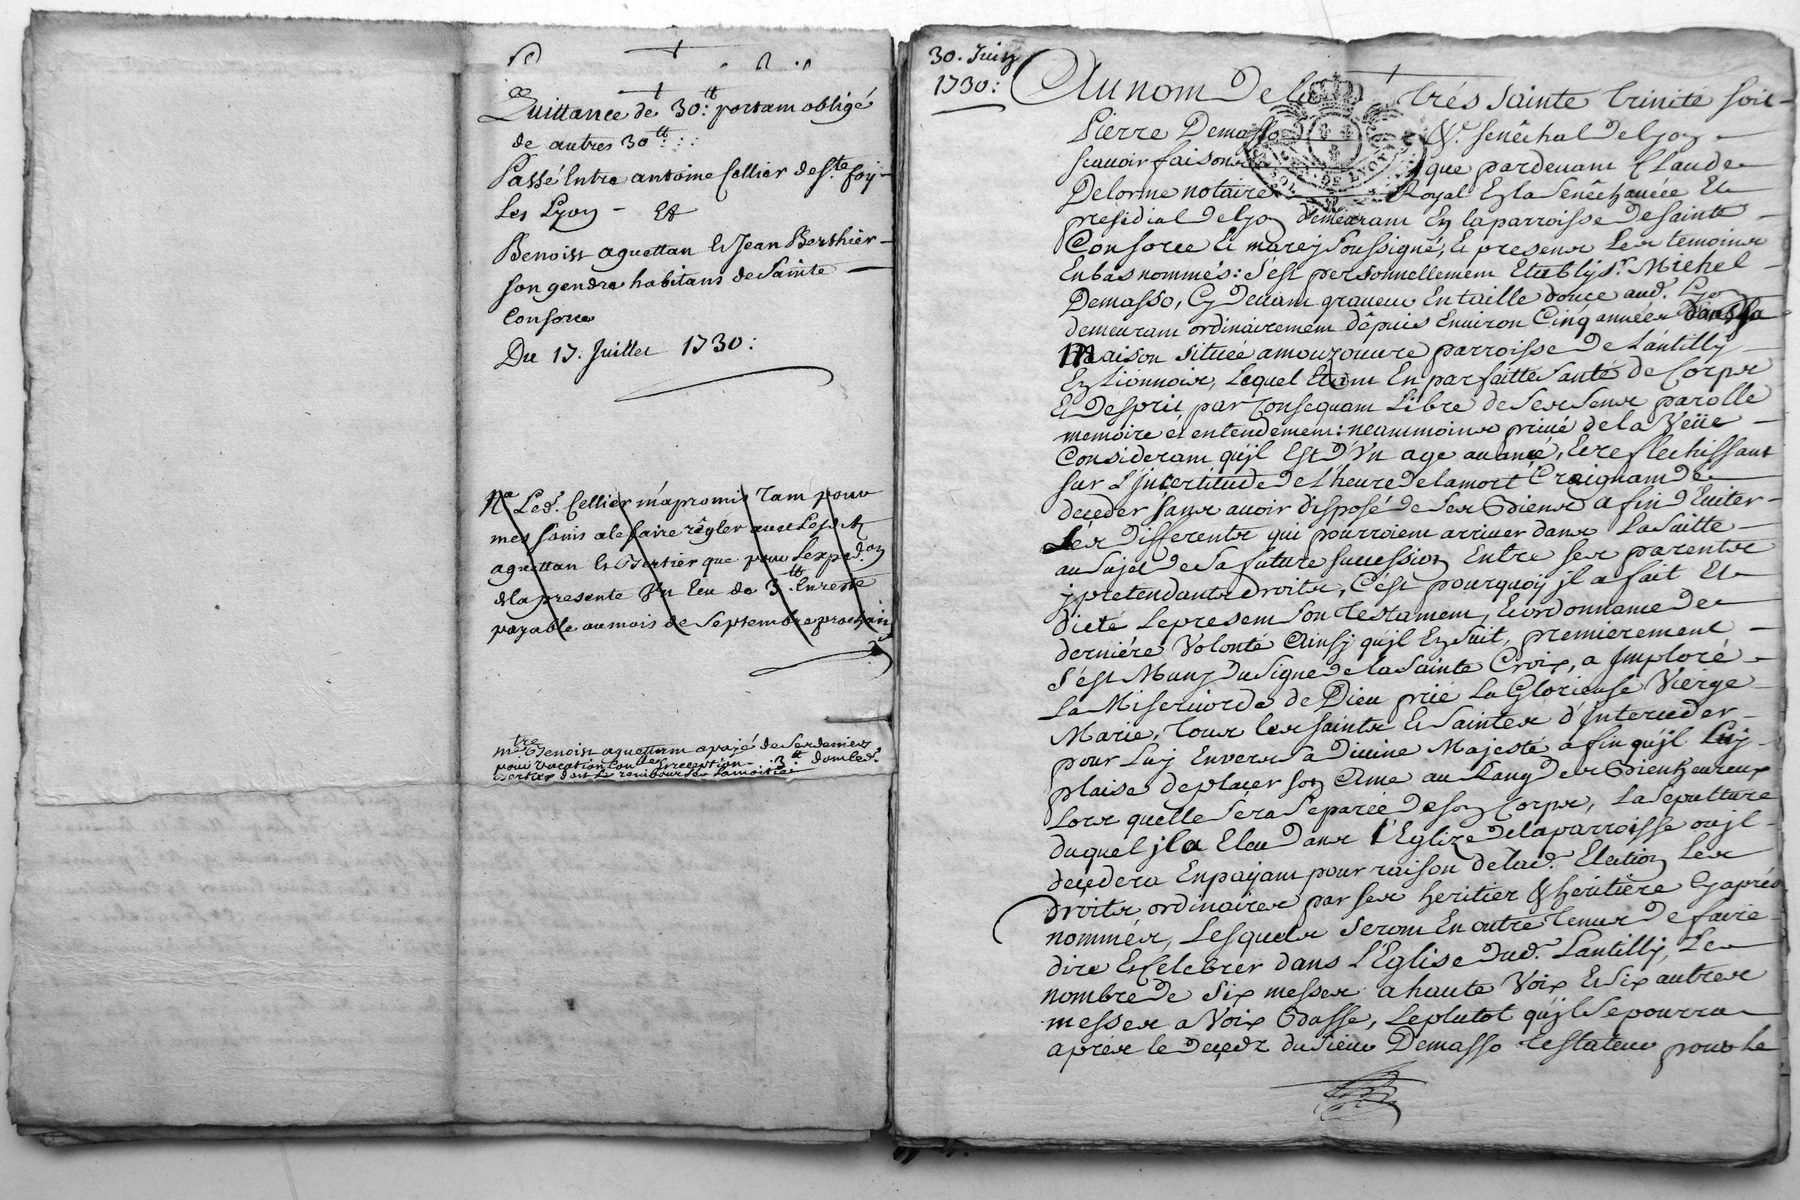 Quittance de 30.tt portant obligé
de autres 30tt
Passé Entre antoine Cellier de Ste foy
Les Lyon - Et
Benoist aguettan Et Jean Berthier
son gendre habitans de Sainte
Consorce
Du 17. Juillet 1730:
Na Led. Cellier m'a promis tant pour
mes soins a le faire règler avec Lesd.
aguettan Et Bertier que pour L'exped.on
de la presente Un Ecu de 3tt. En reste
payable au mois de Septembre prochain
mtre Benoist aguettant a payé de Ses deniers
pour vacation Conlle Et reception 3tt dont led.
Bertier doit Le rembourser La moitié
30. Juin
1730:
Au nom De la très Sainte trinité soit
Pierre Demasso Sr. Senêchal de Lyon
Scavoir faisons que pardevant Claude
Delorme notaire Royal En la Senêchaucée Et
presidial de Lyon demeurant En la parroisse de Sainte
Consorce Et marcy Soussigné, Et presens Les temoins
En bas nommés: S'est personnellement Etably Sr. Michel
Demasso, Cy Devant graveur En taille douce aud. Lyon
demeurant ordinairement dêpuis Environ Cinq années dans Sa
Maison Située a mouzouvre parroisse de Lantilly
En Lionnois, Lequel Etant En parfaitte Santé de Corps
Et D'esprit, par Consequant Libre de Ses Sens parolle
memoire et entendement: neammoins privé de la Veüe
Considerant qu'jl Est D'Un age avancé, Et reflechissant
sur L'jncertitude de L'heure de la mort Craignant de
deçeder sans avoir disposé de Ses Biens a fin d'Eviter
Les Differents qui pourroient arriver dans La Suitte
au Sujet de Sa future succession Entre ses parents
y pretendants Droits, C'est pourquoy jl a fait Et
dicté Le present Son testament, Et ordonnance de
derniére Volonté Ainsy qu'jl En Suit, premierement
S'est Muny du Signe de la Sainte Croix, a Jmploré
La Misericorde de Dieu prié La Glorieuse Vierge
Marie, tous les saints Et Saintes d'Jnterceder
pour Luy Envers Sa Divine Majesté a fin qu'jl Luy
plaise de placer son Ame au Rang des Bienheureux
Lors quelle Sera Séparée de Son Corps, La Sepulture
duquel jl a Eleu Dans L'Eglize de la parroisse ou jl
deçedera En payant pour raison de lad. Election Les
droits ordinaires par ses heritier & heritière Cy aprés
nommés, Lesquels seront En outre tenus de faire
dire Et Celebrer dans L'Eglise dud. Lantilly, Le
nombre de Six messes a haute Voix Et Six autres
messes a Voix Basse, Le plutot qu'jl Se pourra
aprés le deçedz du Sieur Demasso testateur pour le